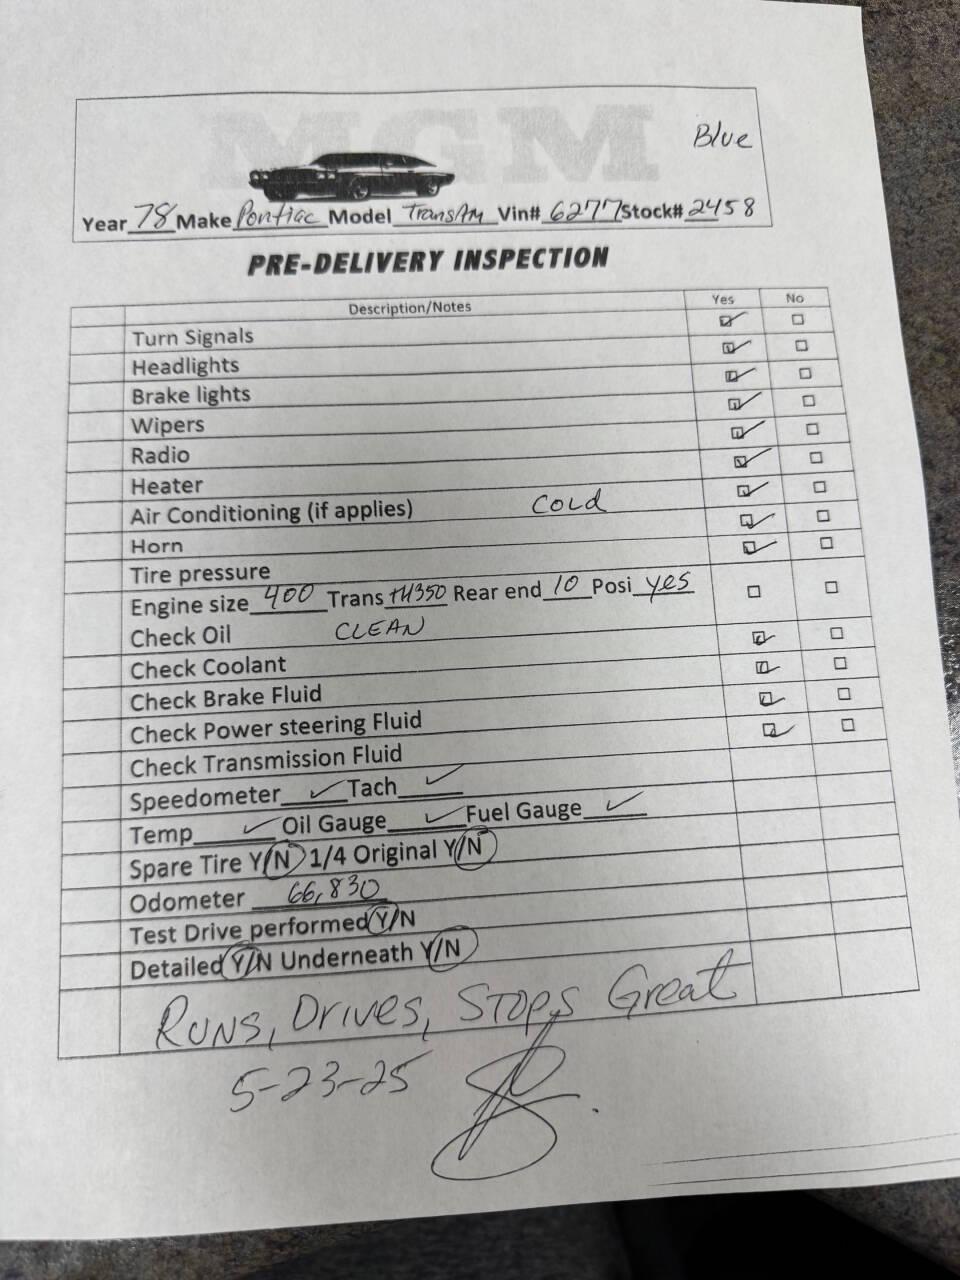 MGM
Blue
Year 78 Make Pontiac Model TransAm Vin# 6277 Stock# 2458
PRE-DELIVERY INSPECTION
Description/Notes Yes No
Turn Signals
Headlights
Brake lights
Wipers
Radio
Heater
Air Conditioning (if applies) COLD
Horn
Tire pressure
Engine size 400 Trans tH350 Rear end 10 Posi yes
Check Oil CLEAN
Check Coolant
Check Brake Fluid
Check Power steering Fluid
Check Transmission Fluid
Speedometer ✓ Tach ✓
Temp ✓ Oil Gauge ✓ Fuel Gauge ✓
Spare Tire Y/N 1/4 Original Y/N
Odometer 66,830
Test Drive performed Y/N
Detailed Y/N Underneath Y/N
Runs, Drives, Stops Great
5-23-25